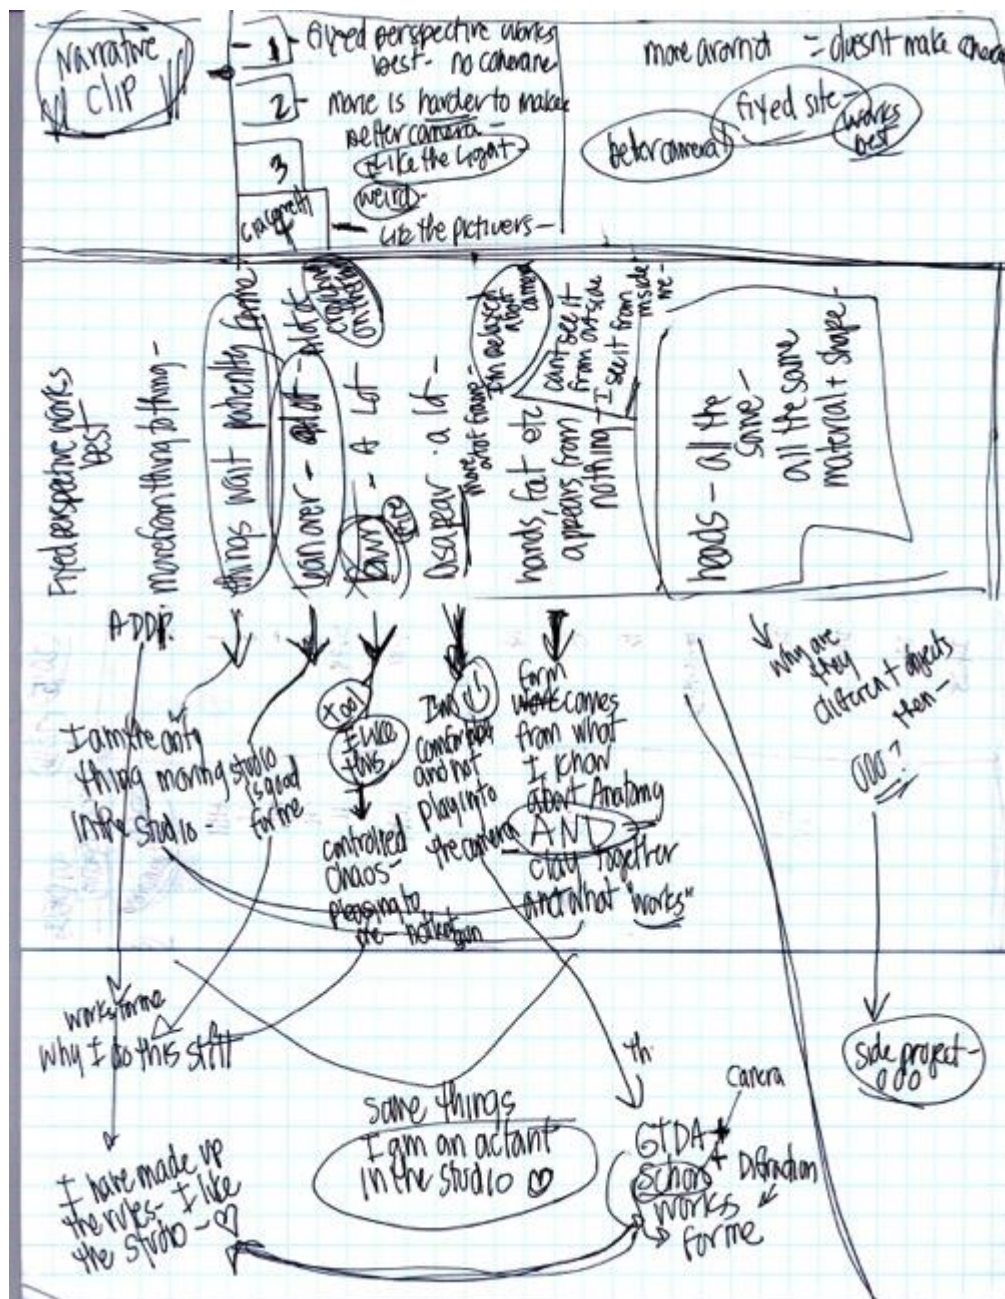 Narrative
Clip
1
Fixed perspective works
best - no coherance
2
more is harder to make
better camera -
I like the light -
weird -
3
4
like the pictures -
more around = doesnt make
fixed site -
works
best
better camera
Fixed perspective works
best
more from thing to thing -
things wait patiently for me
lean over - alot - alot of
A Lot
Disapear - a lot -
more out of frame -
I'm relaxed
about
camera
hands, feet etc
appears from
nothing -
cant see it
from outside
I see it from
inside
me -
heads - all the
same -
all the same
material + shape -
ADD!
I am the only
thing moving
in the studio -
studio
is good
for me
tool
I like
this
controlled
chaos -
pleasing to
me -
Im
comfortable
and not
play into
the camera
form
comes
from what
I know
about Anatomy
AND
clay together
and what "works"
why are
they
different objects
then -
000?
works for me
why I do this
side project -
000
same things
I am an actant
in the studio ♡
Camera
GTDA
Schon
works
for me
Difraction
I have made up
the rules - I like
the studio - ♡